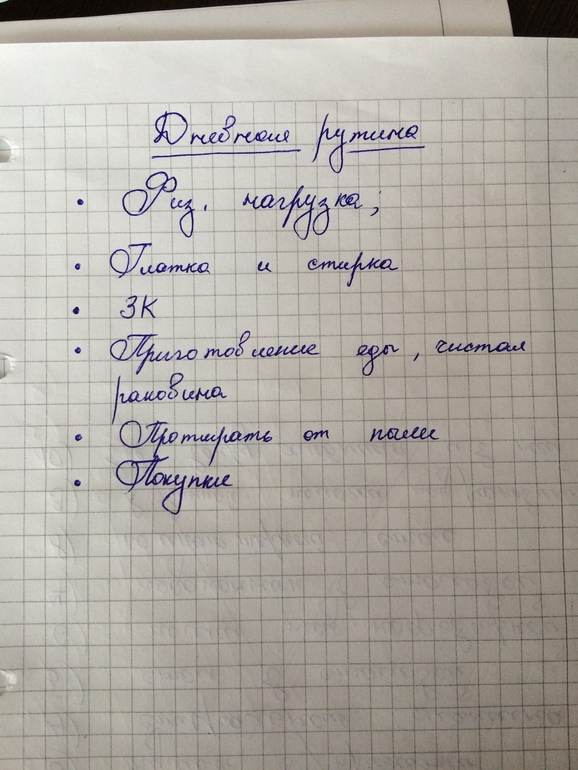 Дневная рутина
• Физ. нагрузка;
• Глажка и стирка
• ЗК
• Приготовление еды, чистая
раковина
• Протирать от пыли
• Покупки